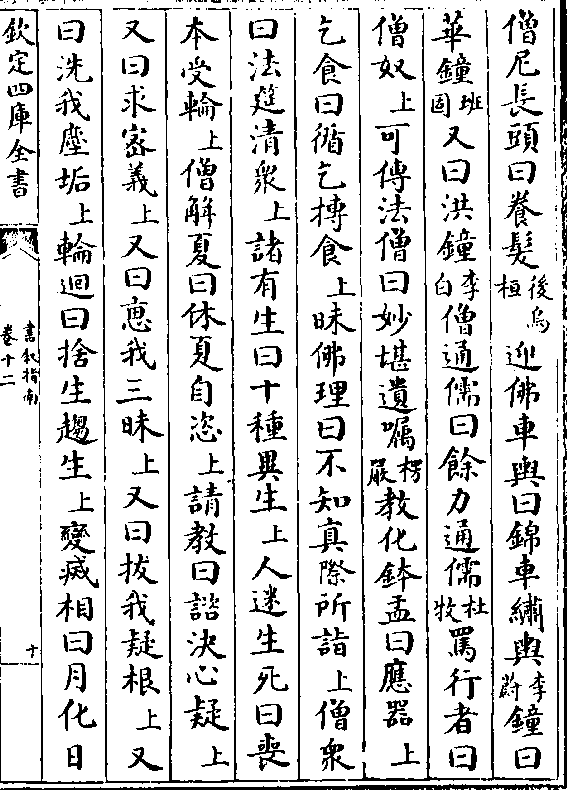 僧尼長頭曰養髮後烏桓迎佛車輿曰錦車繡輿李蔚鐘曰
華鐘班固又曰洪鐘李白僧通儒曰餘力通儒杜牧罵行者曰
僧奴上可傳法僧曰妙堪遺囑楞嚴教化鉢盂曰應器上
乞食曰循乞摶食上昧佛理曰不知真際所詣上僧衆
曰法筵清衆上諸有生曰十種異生上人迷生死曰喪
本受輪上僧解夏曰休夏自恣上請教曰諮決心疑上
又曰求宻義上又曰惠我三昧上又曰拔我疑根上又
曰洗我塵垢上輪迴曰捨生趨生上變滅相曰月化日
欽定四庫全書
書叙指南
卷十二
十